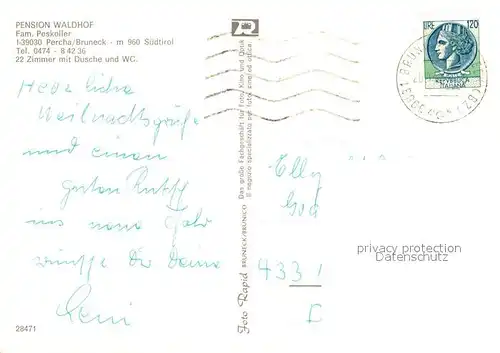 PENSION WALDHOF
Fam. Peskoller
I-39030 Percha/Bruneck - m 960 Südtirol
Tel. 0474 - 8 42 36
22 Zimmer mit Dusche und WC.
Herzliche
Weihnachtsgrüße
und einen
guten Rutsch
ins neue Jahr
wünscht Dir Deine
Leni
28471
Foto Rapid BRUNECK/BRUNICO
Das große Fachgeschäft für Foto, Kino und Optik
Il negozio specializzato per foto, cine ed ottica
LIRE 120
REPUBBLICA
ITALIANA
Elly
433
privacy protection
Datenschutz